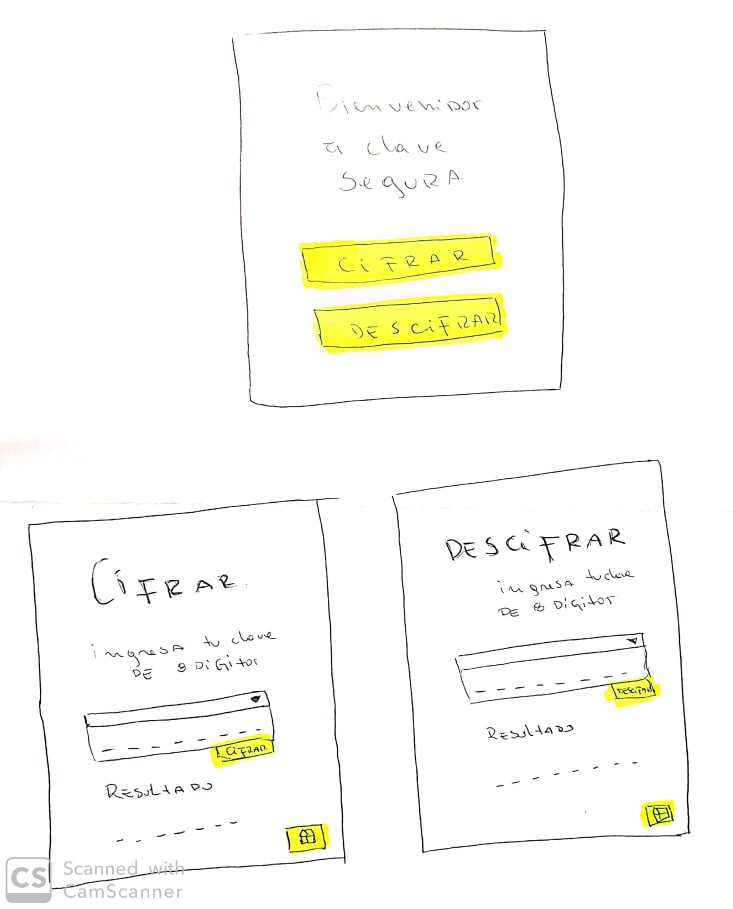 Bienvenidos
a clave
SEGURA
CIFRAR
DESCIFRAR
CIFRAR
ingresa tu clave
DE 8 DIGITOS
CIFRAR
RESULTADO
DESCIFRAR
ingresa tu clave
DE 8 DIGITOS
RESULTADO
CS Scanned with
CamScanner